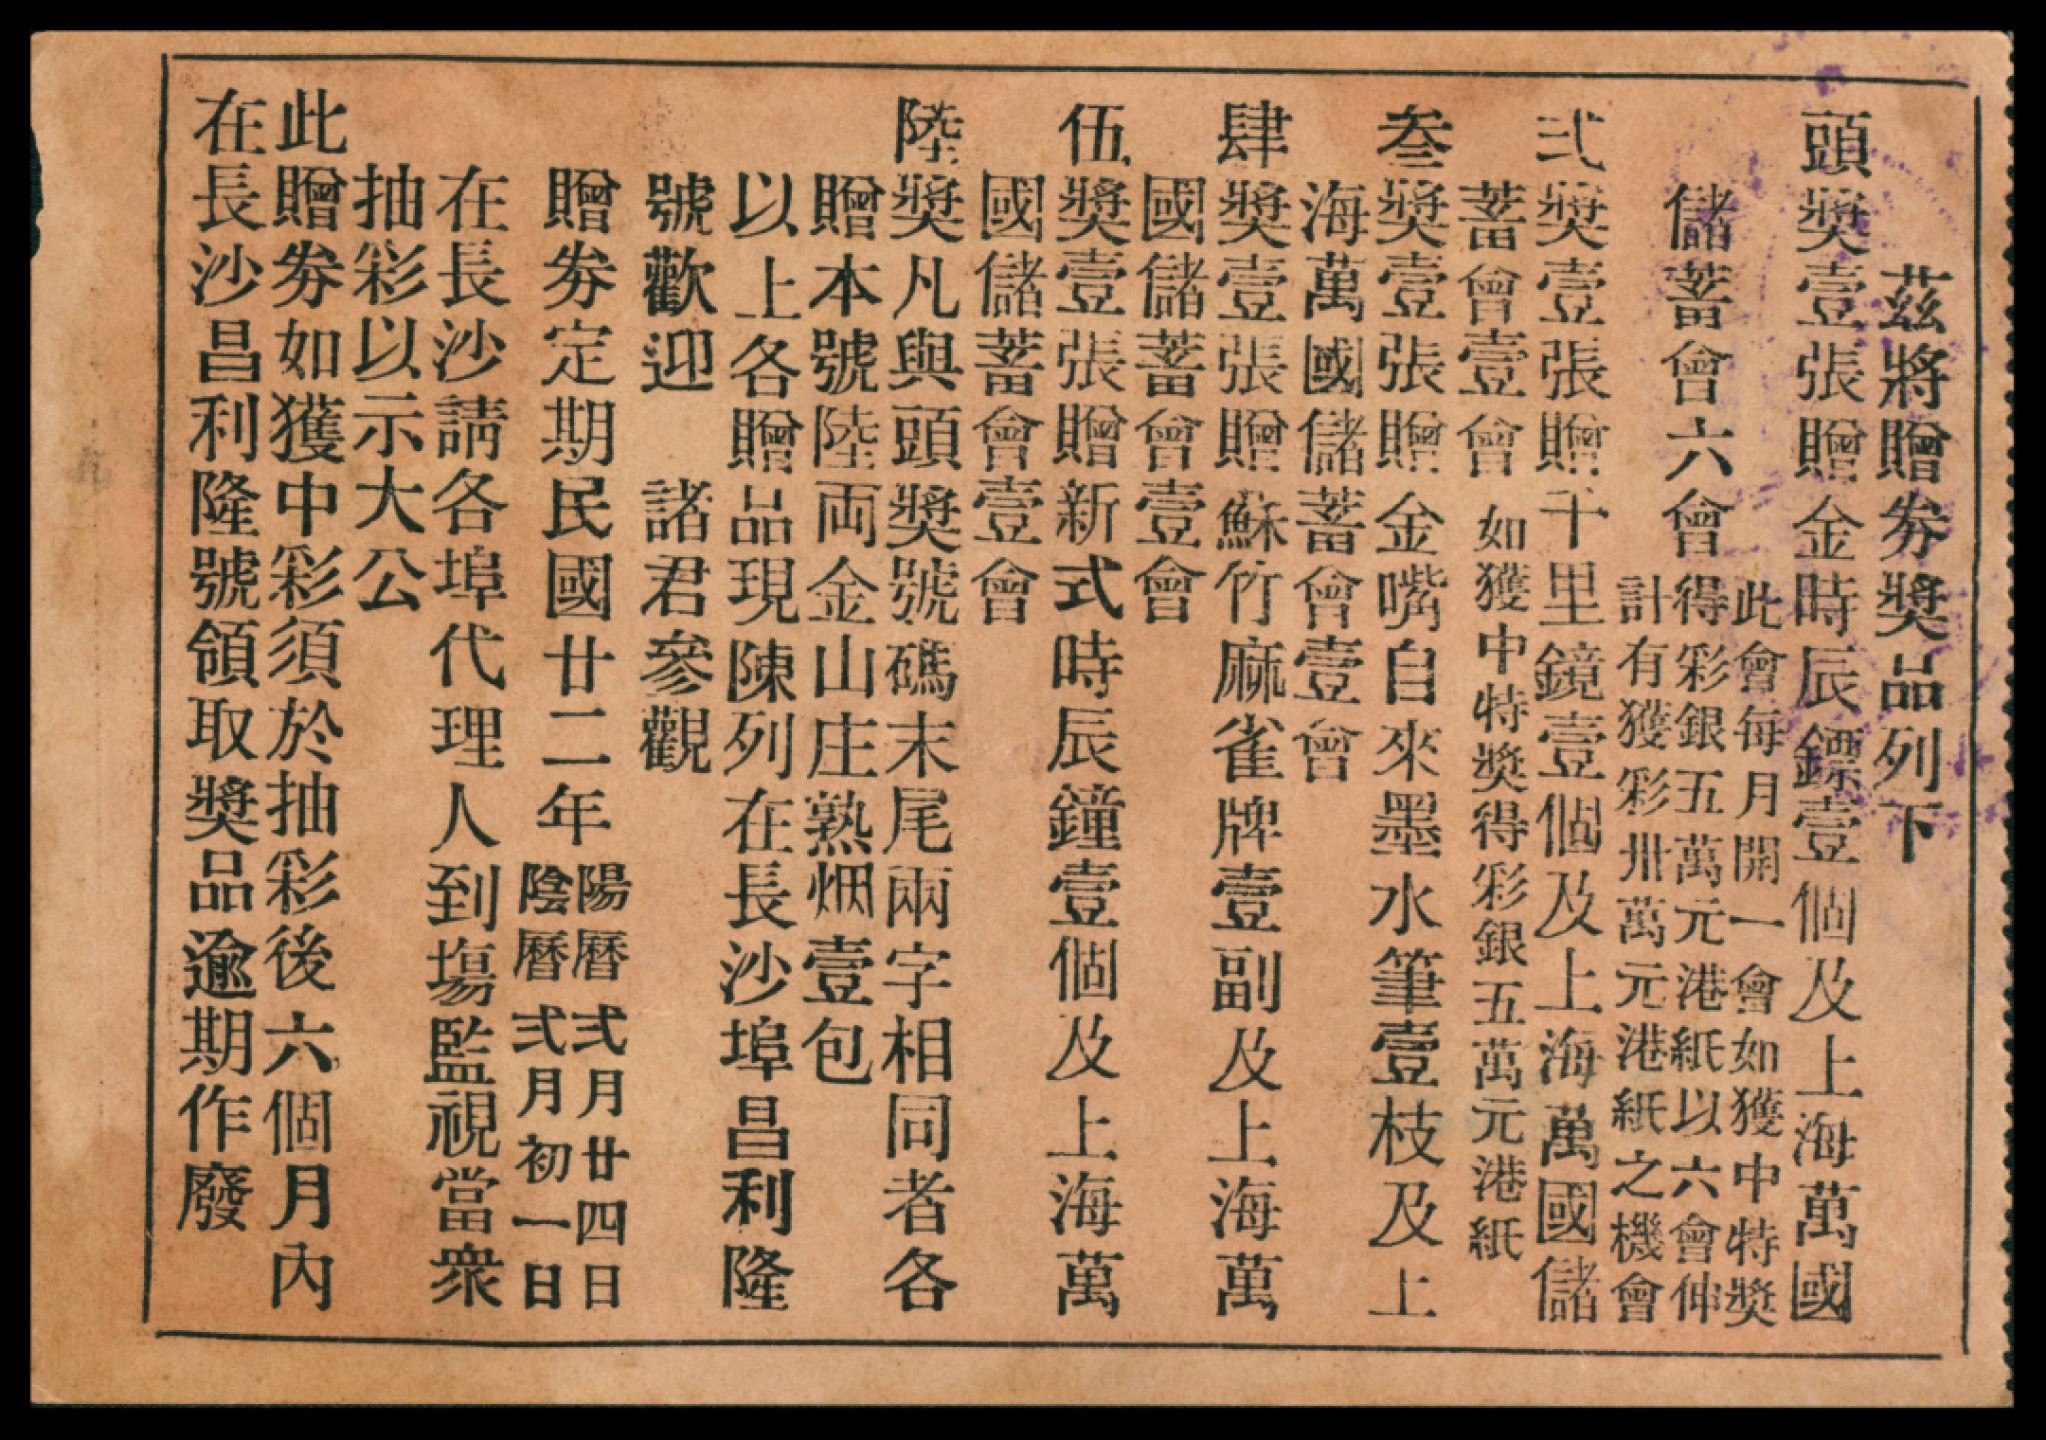 茲將贈券奬品列下
頭奬壹張贈金時辰鏢壹個及上海萬國
儲蓄會六會
此會每月開一會如獲中特奬
得彩銀五萬元港紙以六會伸
計有獲彩卅萬元港紙之機會
弍奬壹張贈千里鏡壹個及上海萬國儲
蓄會壹會 如獲中特奬得彩銀五萬元港紙
叁奬壹張贈金嘴自來墨水筆壹枝及上
海萬國儲蓄會壹會
肆奬壹張贈蘇竹麻雀牌壹副及上海萬
國儲蓄會壹會
伍奬壹張贈新式時辰鐘壹個及上海萬
國儲蓄會壹會
陸奬凡與頭奬號碼末尾兩字相同者各
贈本號陸両金山庄熟烟壹包
以上各贈品現陳列在長沙埠昌利隆
號歡迎 諸君參觀
贈券定期民國廿二年
陽曆弍月廿四日
陰曆弍月初一日
在長沙請各埠代理人到塲監視當衆
抽彩以示大公
此贈券如獲中彩須於抽彩後六個月內
在長沙昌利隆號領取奬品逾期作廢